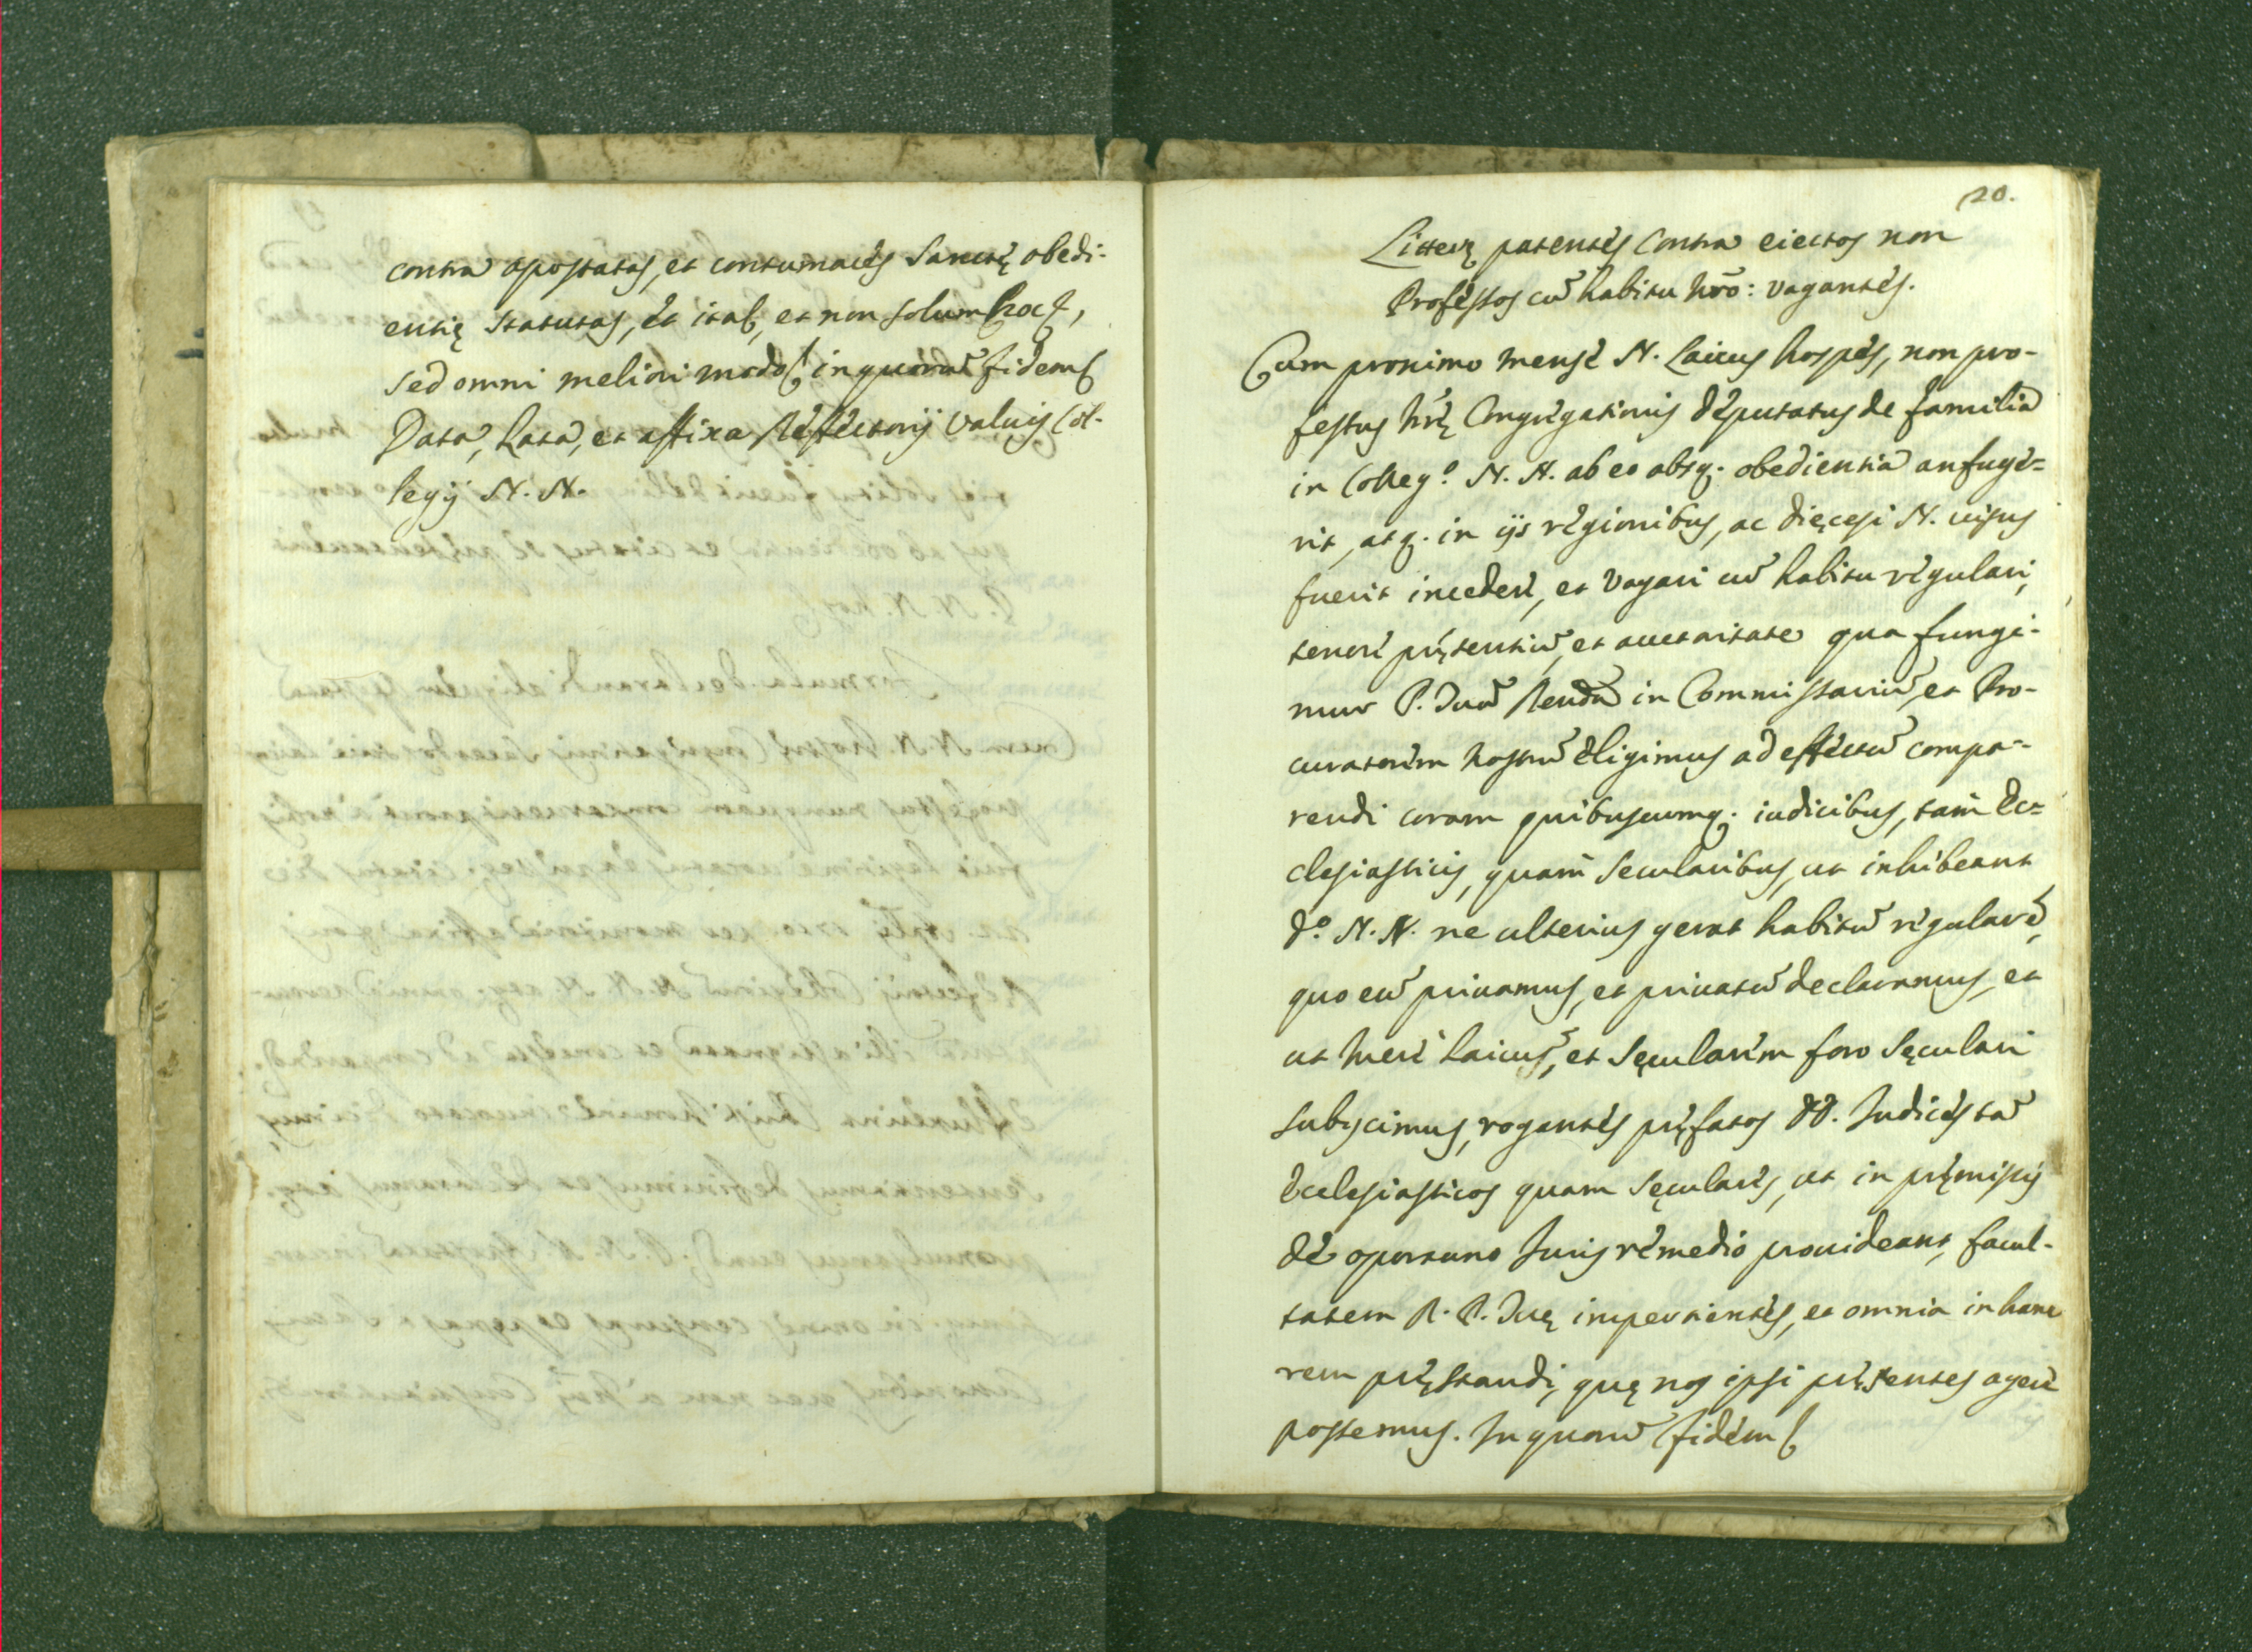 contra apostatas, et contumacés Sanctę obedi-
entię statutas, et ita &, et non solum hoc &,
sed omni meliori modo & in quorũ fidem &
Data, Lata, et affixa Réfféctorij valuis Col-
legij N. N.
20.
Litterę patentés contra eiectos non
Proféssos cũ habitu nr̃o: vagantés.
Cum proximo mensé N. Laicus hospés, non pro-
fessus nr̃ę Congrégationis députatus de familia
in Colleg.º N. N. ab eo absq. obedientia aufugé=
rit, atq. in ijs régionibus, ac dięcesi N. uisus
fuerit incederé, et vagari cũ habitu régulari,
tenoré pręsentiũ, et auctoritate qua fungi-
mur P. Tuã Rendã in Commissariũ, et Pro-
curatorém nostrũ éligimus ad efféctũ compa-
rendi coram quibuscumq. iudicibus, tam Ec=
clesiasticis, quam secularibus, ut inhibeant
d.º N. N. ne ulterius gerat habitũ régularé,
quo eũ priuamus, et priuatũ declaramus, et
ut meré laicũ, et sęcularém foro sęculari
subijcimus, rogantés pręfatos DD. Iudicés tã
Ecclesiasticos quam sęcularés, ut in pręmissis
dé oportuno Iuris rémedio prouideant, facul-
tatem R. P. Tuę impertientés, et omnia in hanc
rem pręstandi, quę nos ipsi pręsentes ageré
possemus. In quorũ fidém &